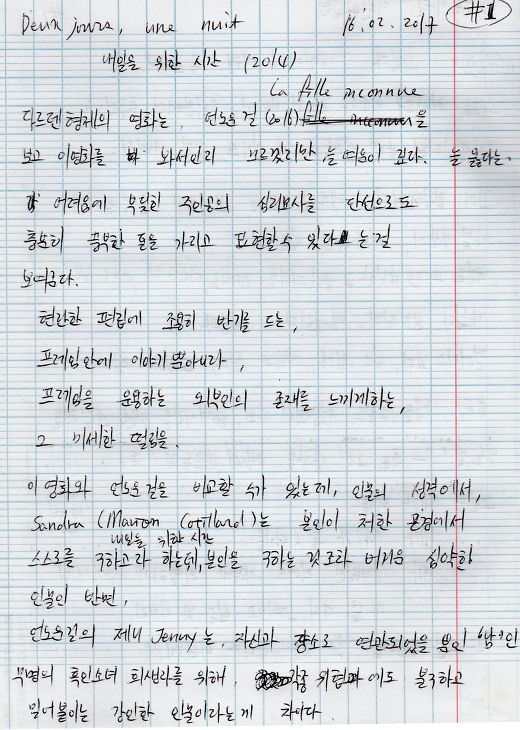 Deux jours, une nuit 16. 02. 2017 #1
내일을 위한 시간 (2014)
La fille inconnue
다르덴 형제의 영화는, 언노운 걸 (2016) 을
보고 이 영화를 봐서인지 늘 여운이 깊다.
어려움에 부딪힌 주인공의 심리묘사를 단선으로도
충분히 풍부한 톤을 가지고 표현할 수 있다는 걸
보여준다.
현란한 편집에 조용히 반기를 드는,
프레임 안에 이야기뿐아니라,
프레임을 운용하는 외부인의 존재를 느끼게하는,
그 미세한 떨림을.
이 영화와 언노운 걸을 비교할 수가 있는데, 인물의 성격에서,
Sandra (Marion Cotillard)는 본인이 처한 환경에서
내일을 위한 시간
스스로를 구하고자 하는데, 본인을 구하는 것조차 버거운 심약한
인물인 반면,
언노운걸의 제니 Jenny는, 자신과 장소로 연관되었을 뿐인
무명의 흑인소녀 희생자를 위해, 각종 위험에도 불구하고
밀어붙이는 강인한 인물이라는게 차이다.